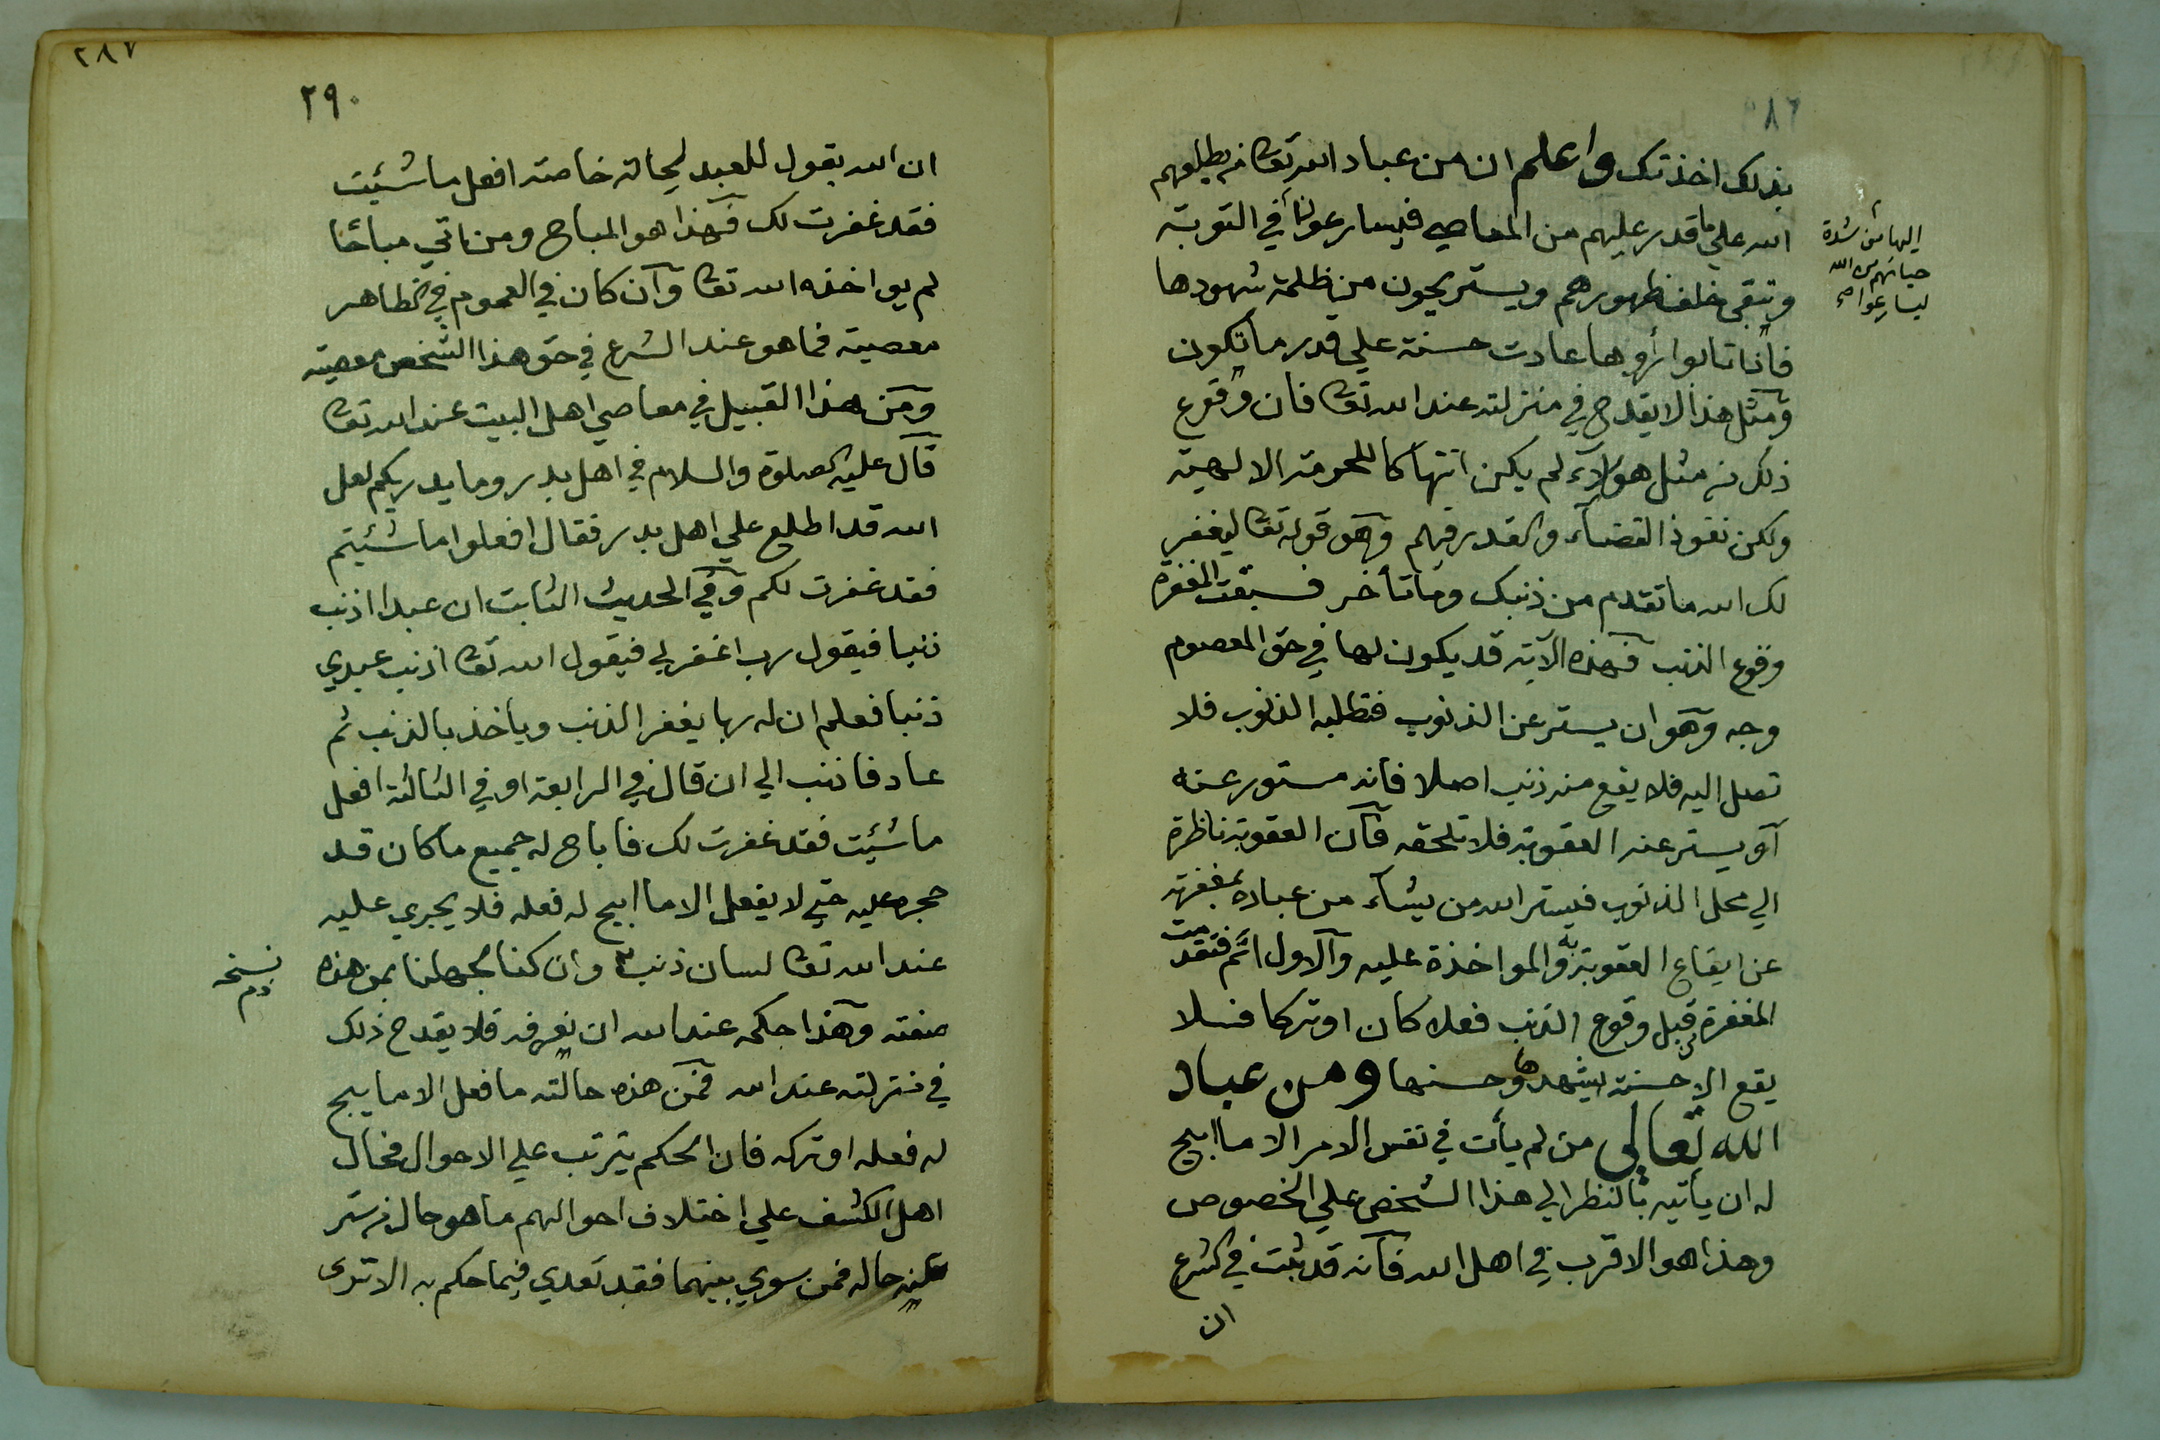 ٢٨٦
بذلك اخذتك واعلم ان من عباد الله تعا من يطلعهم
الله على ما قدر عليهم من المعاصي فيسارعون في التوبة
وتبقى خلف ظهورهم ويستريحون من ظلمة شهودها
فاذا تابوا رأوها عادت حسنة علي قدر ما تكون
ومثل هذا لا يقدح في منزلته عند الله تعا فان وقوع
ذلك من مثل هولآء لم يكن انتهاكا للحرمة الالهية
ولكن نفوذ القضآء والقدر فيهم وهو قوله تعا ليغفر
لك الله ما تقدم من ذنبك وما تأخر فسبقت المغفرة
وقوع الذنب فهذه الآية قد يكون لها في حق المعصوم
وجه وهو ان يستر عن الذنوب فتطلبه الذنوب فلا
تصل اليه فلا يقع منه ذنب اصلا فانه مستور عنه
او يستر عنه العقوبة فلا تلحقه فان العقوبة ناظرة
الي محل الذنوب فيستر الله من يشآء من عباده بمغفرته
عن ايقاع العقوبة به والمواخذة عليه والاول اتم فتقدمت
المغفرة من قبل وقوع الذنب فعلا كان او تركا فلا
يقع الا حسنة يشهدها وحسنها ومن عباد
الله تعالى من لم يأت في نفس الامر الا ما ابيح
له ان يأتيه بالنظر الي هذا الشخص علي الخصوص
وهذا هو الاقرب في اهل الله فانه قد ثبت في الشرع
ان
اليها من شدة
حيائهم من الله
ليسارعوا
٢٨٧
٢٩٠
ان الله يقول للعبد لحالة خاصة افعل ما شئيت
فقد غفرت لك فهذا هو المباح ومن اتي مباحًا
لم يواخذه الله تعا وان كان في العموم في الظاهر
معصية فما هو عند الشرع في حق هذا الشخص معصية
ومن هذا القبيل في معاصي اهل البيت عند الله تعا
قال عليه الصلوة والسلام في اهل بدر وما يدريكم لعل
الله قد اطلع علي اهل بدر فقال افعلوا ما شئيتم
فقد غفرت لكم وفي الحديث الثابت ان عبدا اذنب
ذنبا فيقول رب اغفر لي فيقول الله تعا اذنب عبدي
ذنبا فعلم ان له ربا يغفر الذنب وياخذ بالذنب ثم
عاد فاذنب الي ان قال في الرابعة او في الثالثة افعل
ما شئيت فقد غفرت لك فاباح له جميع ما كان قد
حجره عليه حتي لا يفعل الا ما ابيح له فعله فلا يجري عليه
عند الله تعا لسان ذنب وان كنا لجهلنا بمن هذه
صفته وهذا حكمه عند الله ان نعرفه فلا يقدح ذلك
في منزلته عند الله فمن هذه حالته ما فعل الا ما يبيح
له فعله او تركه فان الحكم يترتب علي الاحوال فحال
اهل الكشف علي اختلاف احوالهم ما هو حال من ستر
عنه حاله فمن سوي بينهما فقد تعدي فيما حكم به الا ترى
نسخه